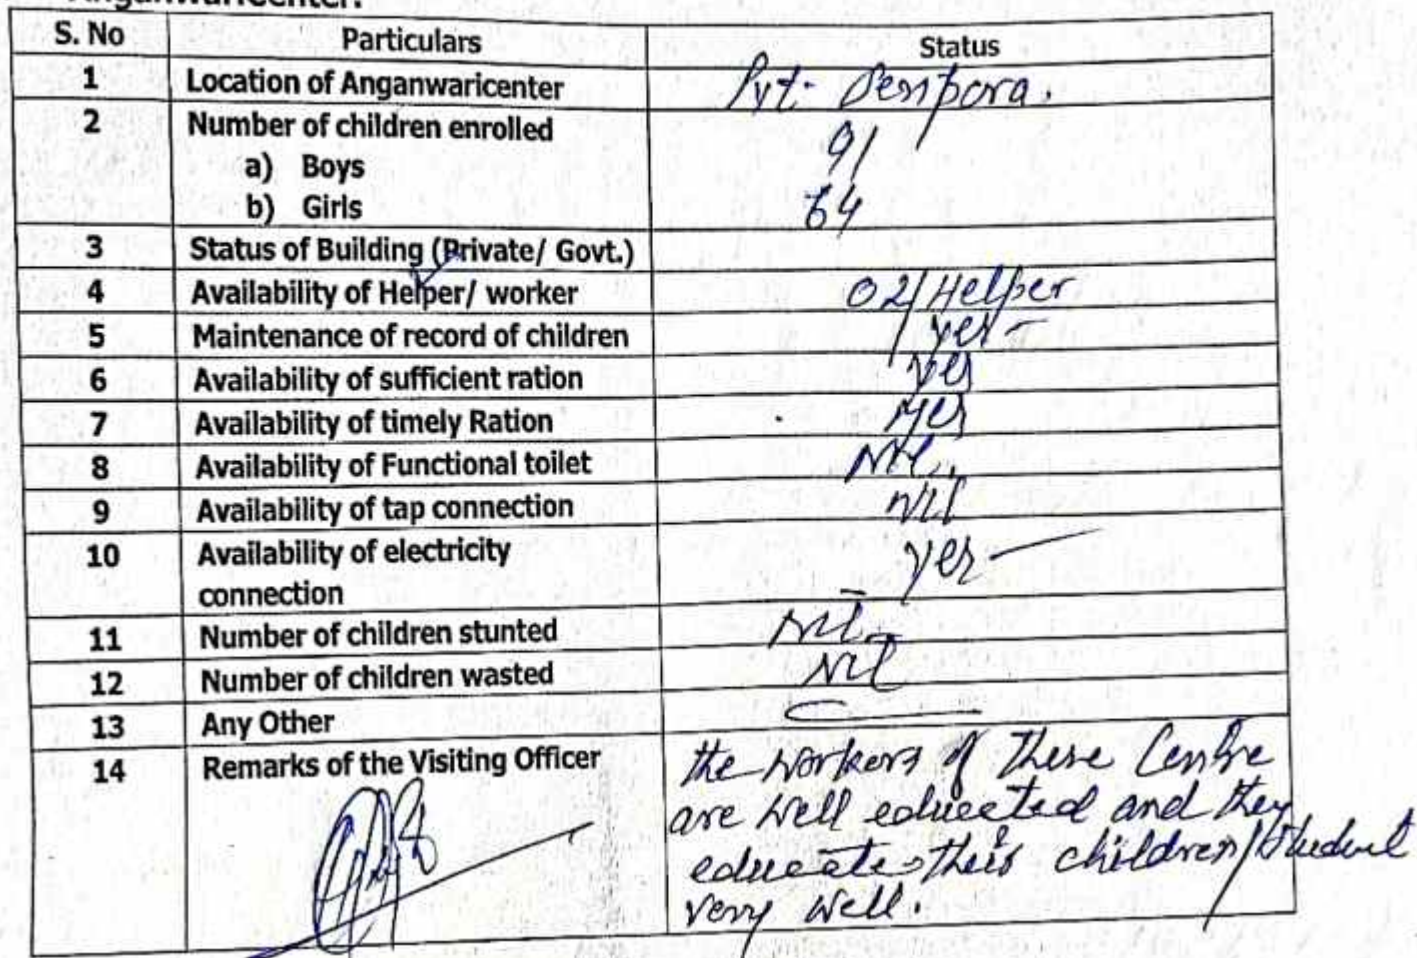 Anganwaricenter:
S. No Particulars Status
1 Location of Anganwaricenter Pvt- Denpora.
2 Number of children enrolled
a) Boys 91
b) Girls 64
3 Status of Building (Private/ Govt.)
4 Availability of Helper/ worker 02/Helper
5 Maintenance of record of children yes
6 Availability of sufficient ration yes
7 Availability of timely Ration yes
8 Availability of Functional toilet Nil
9 Availability of tap connection Nil
10 Availability of electricity yes
connection
11 Number of children stunted Nil
12 Number of children wasted Nil
13 Any Other
14 Remarks of the Visiting Officer the workers of these Centre
are well educated and they
educate their children/student
very well.